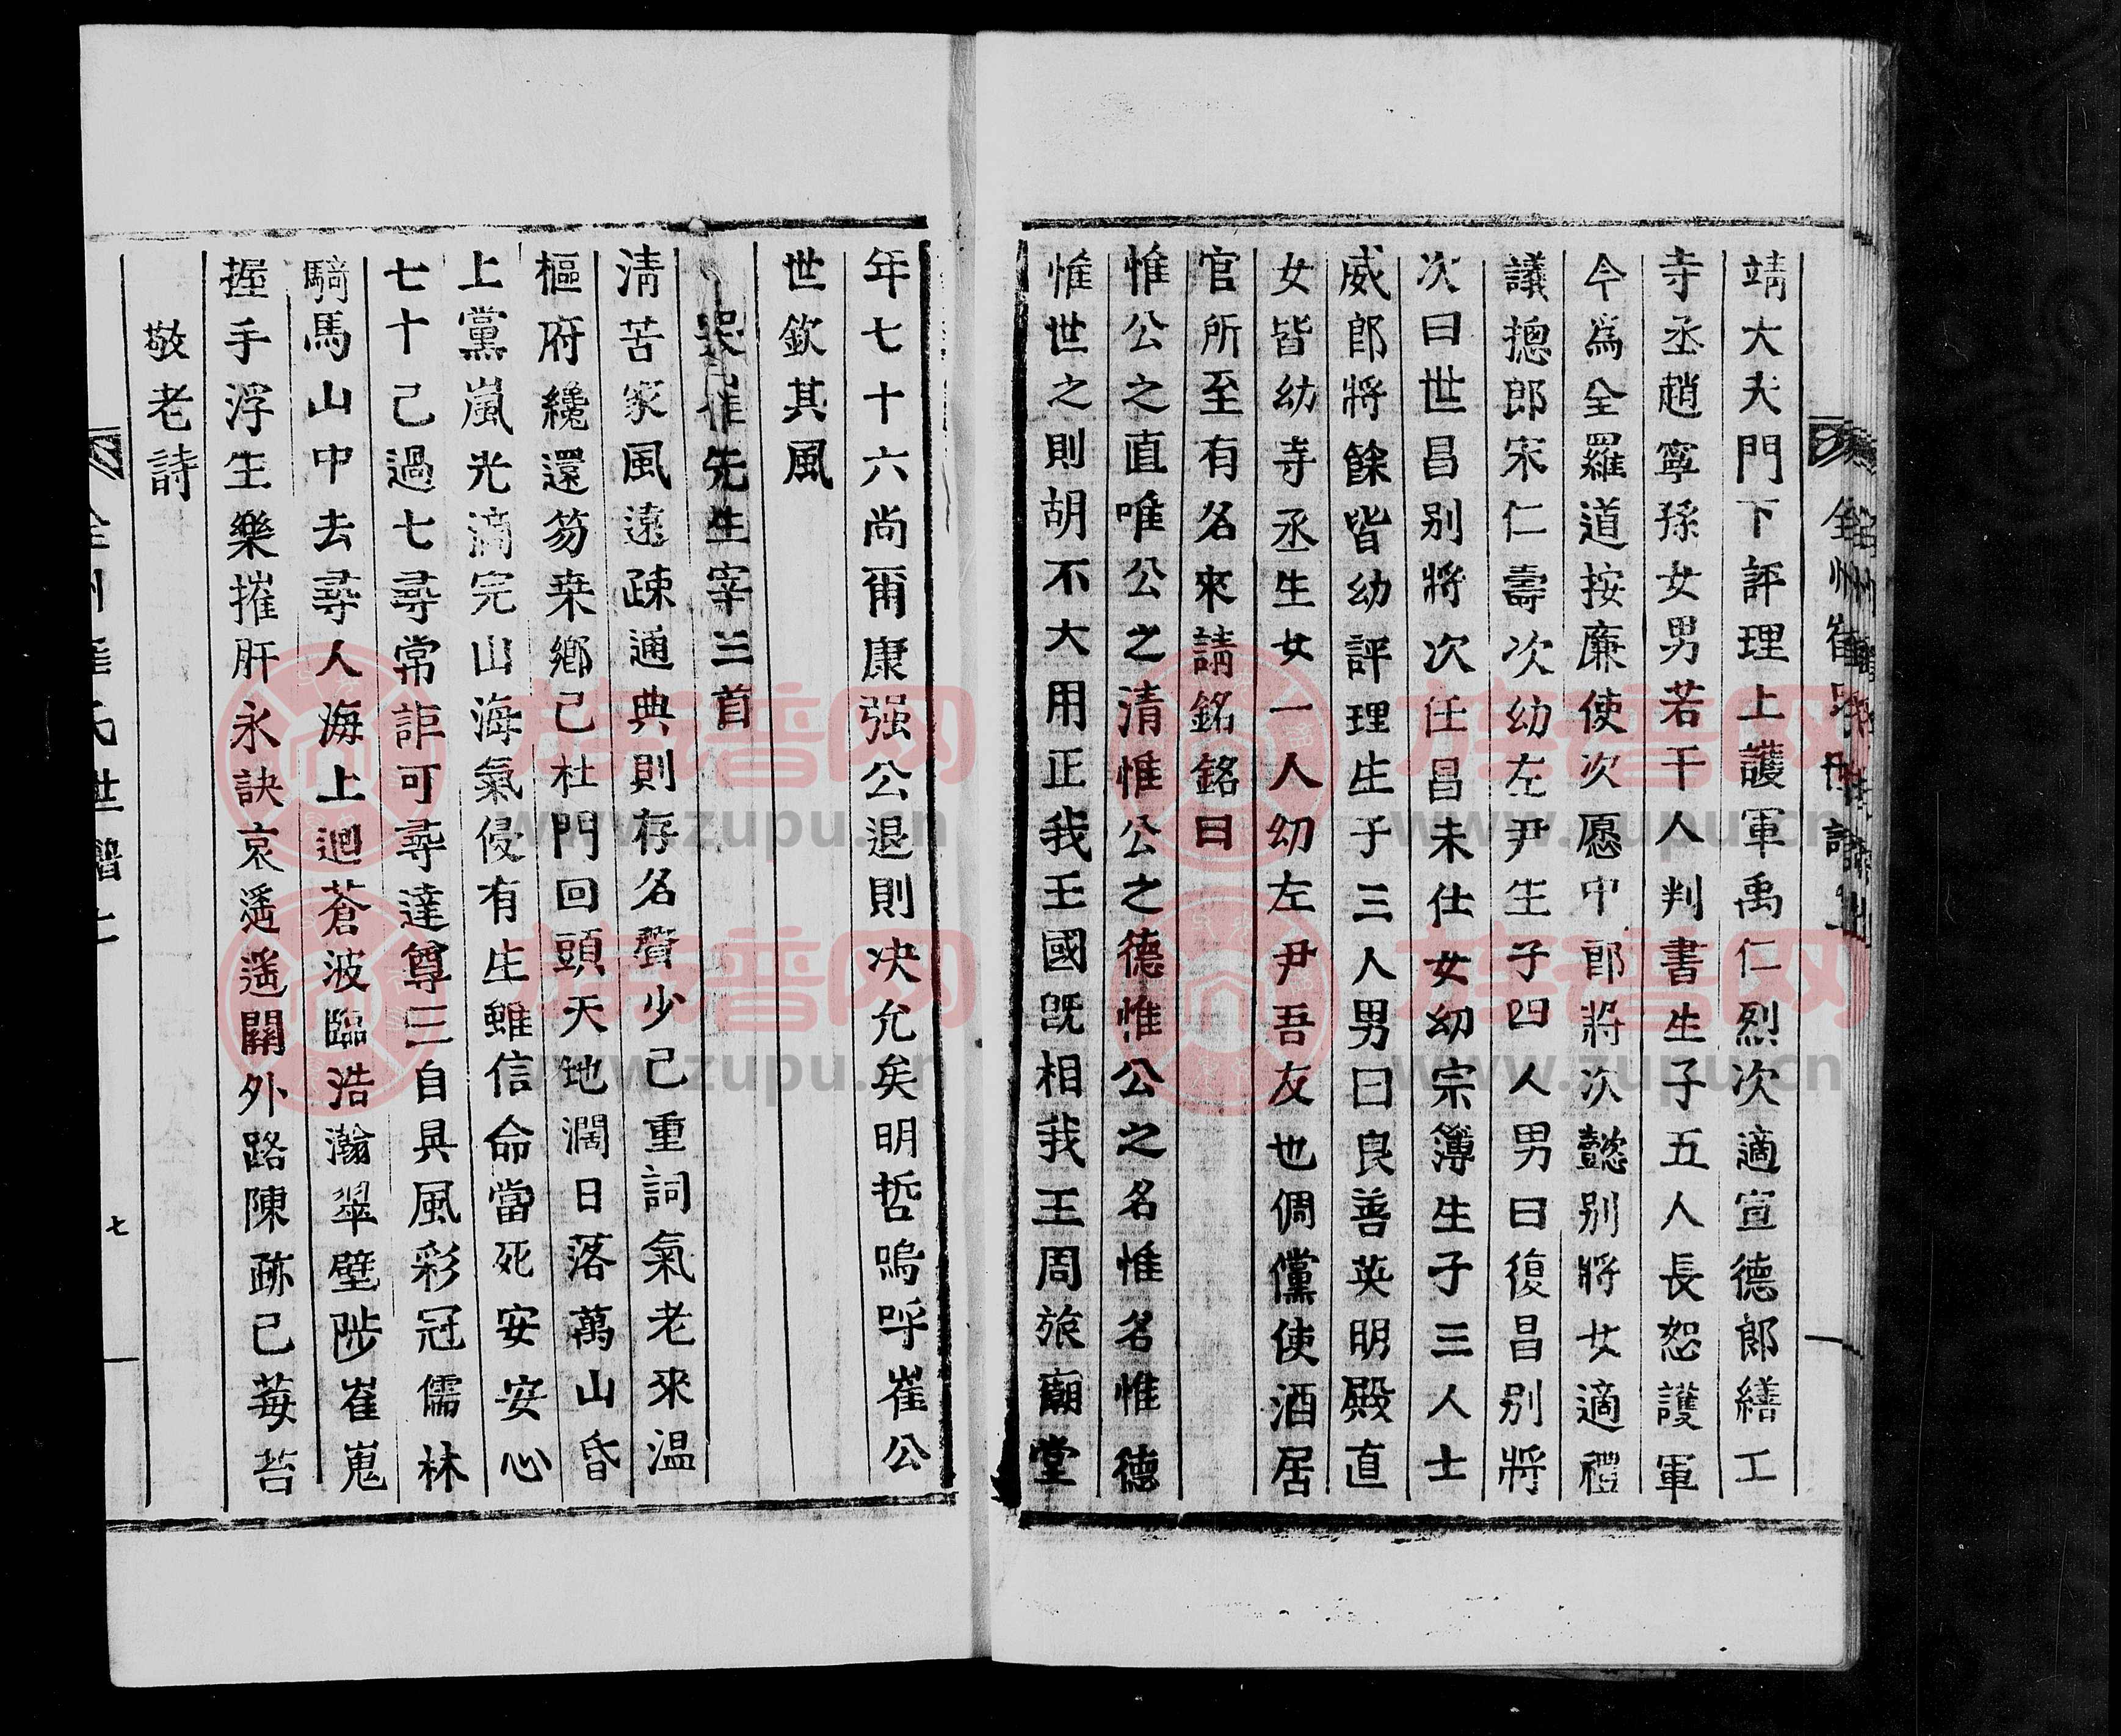 靖大夫門下評理上護軍禹仁烈次適宣德郎繕工
寺丞趙寧孫女男若干人判書生子五人長恕護軍
今爲全羅道按廉使次愿中郎將次懿别將女適禮
議摠郎宋仁壽次幼左尹生子四人男曰復昌别將
次曰世昌别將次任昌未仕女幼宗簿生子三人士
威郎將餘皆幼評理生子三人男曰良善英明殿直
女皆幼寺丞生女一人幼左尹吾友也倜儻使酒居
官所至有名來請銘銘曰
惟公之直唯公之清惟公之德惟公之名惟名惟德
惟世之則胡不大用正我王國旣相我王周旅廟堂
年七十六尚爾康强公退則决允矣明哲嗚呼崔公
世欽其風
哭崔先生宰三首
淸苦家風遠疎通典則存名聲少已重詞氣老來温
樞府纔還笏桒鄉已杜門回頭天地濶日落萬山昏
上黨嵐光滴完山海氣侵有生雖信命當死安安心
七十已過七尋常詎可尋達尊三自具風彩冠儒林
騎馬山中去尋人海上迴蒼波臨浩瀚翠壁陟崔嵬
握手浮生樂摧肝永訣哀遥遥關外路陳跡已莓苔
敬老詩
全州崔氏世譜上
七
族普网
www.zupu.cn
族普网
www.zupu.cn
族普网
www.zupu.cn
族普网
www.zupu.cn